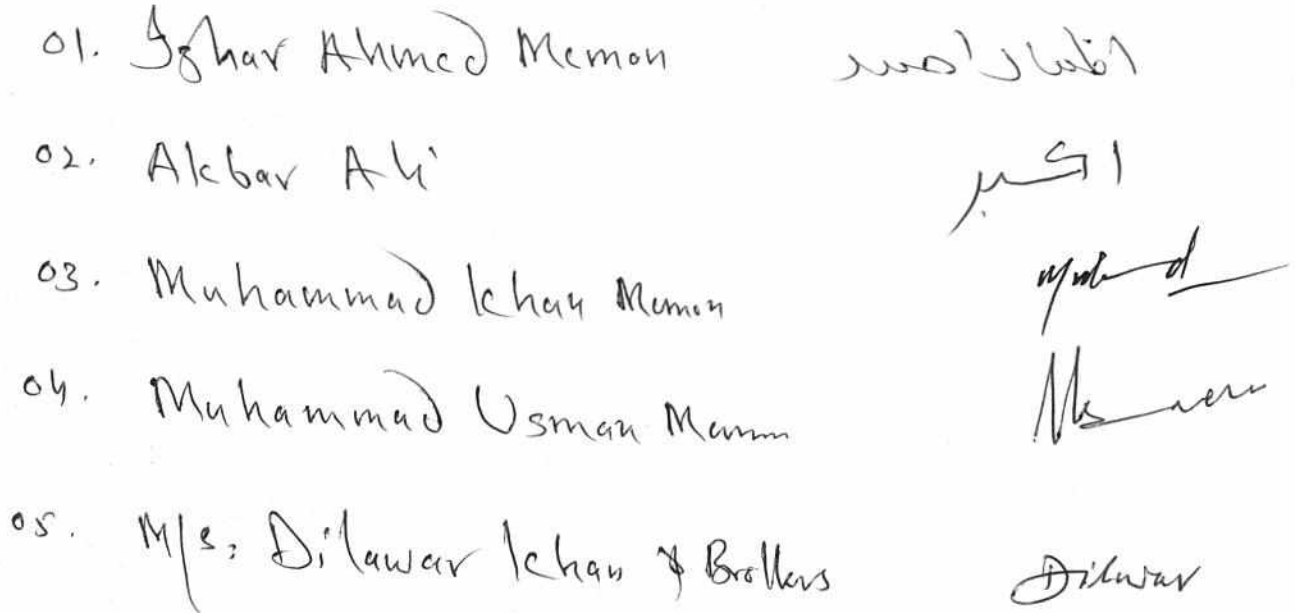 01. Izhar Ahmed Memon اظہار احمد
02. Akbar Ali اکبر
03. Muhammad Khan Memon
04. Muhammad Usman Memon
05. M/s: Dilawar Khan & Brothers Dilawar